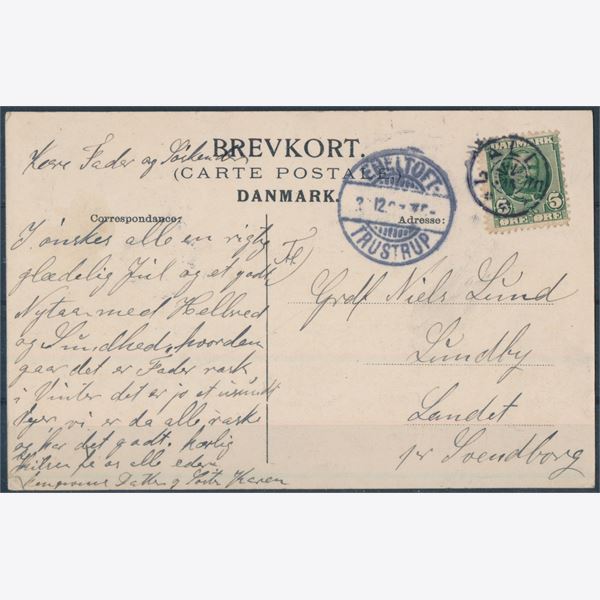 BREVKORT.
(CARTE POSTALE.)
DANMARK.
Correspondance:
Adresse:
EBELTOFT-
TRUSTRUP
DANMARK
5 5
ØRE ØRE
Kære Fader og Söskende
I ønskes alle en rigtig
glædelig Jul og et godt
Nytaar med Helbred
og Sundhed, hvordan
gaar det er Fader rask
i Vinter det er jo et usundt
Vejr, vi er da alle raske
og har det godt. Kærlig
Hilsen fra os alle eders
Datter og Søster Karen
Til
Grdf Niels Lund
Lundby
Landet
pr Svendborg